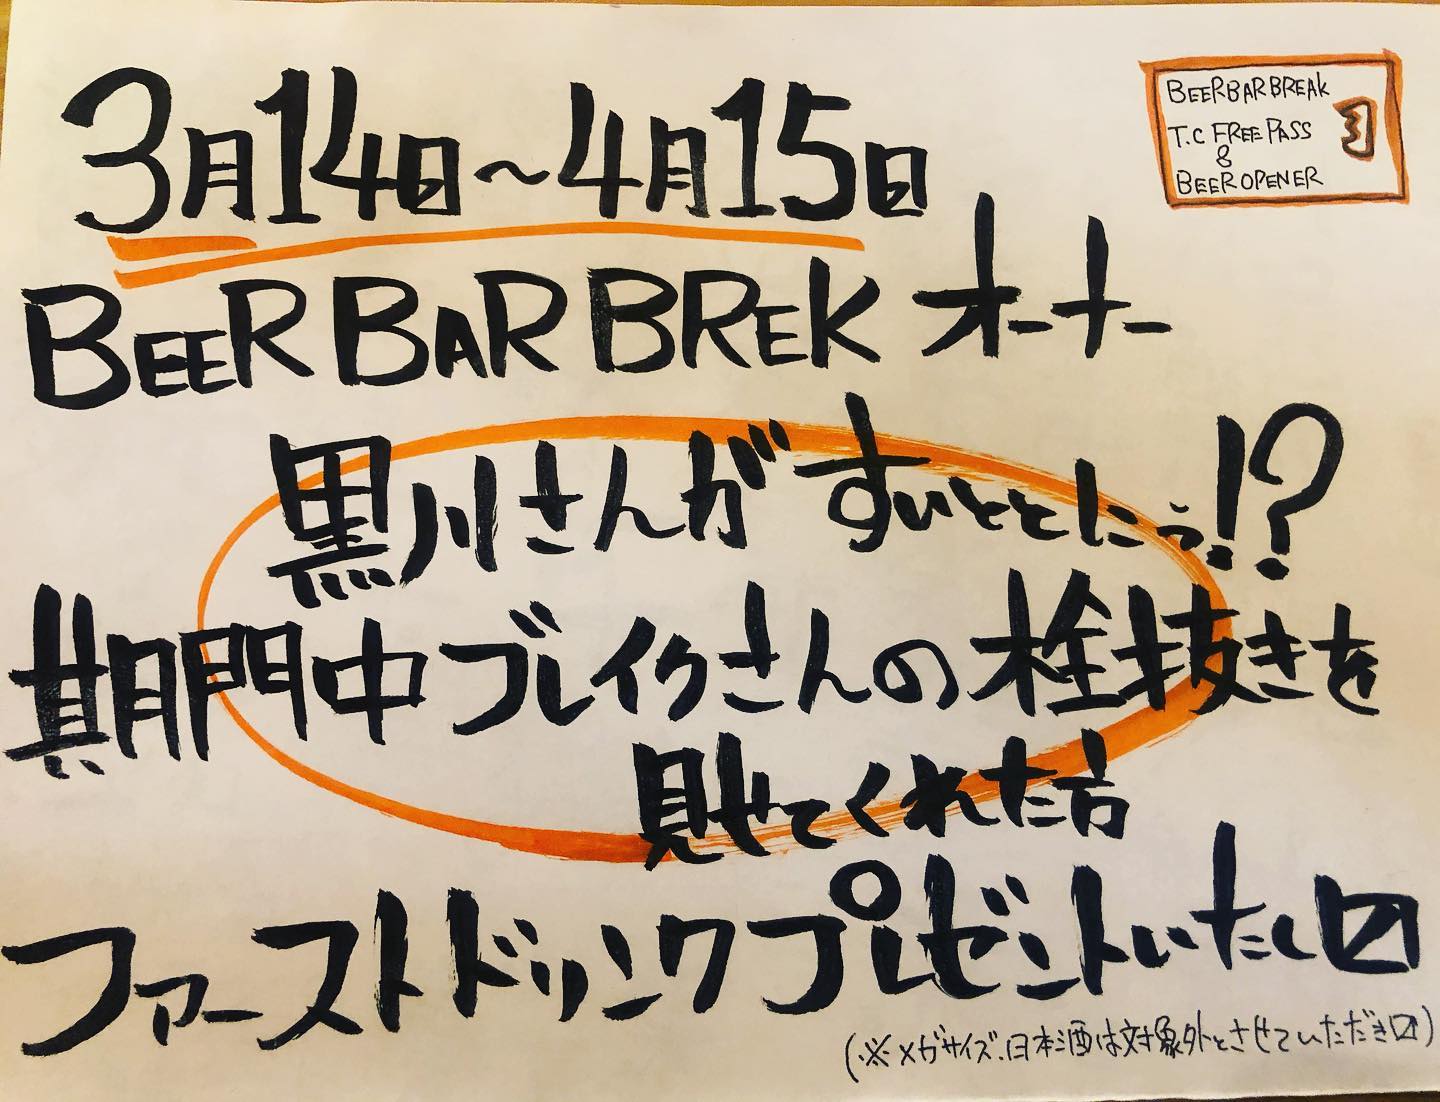 3月14日〜4月15日
BEERBARBREAK
T.C FREE PASS
&
BEER OPENER
BEER BAR BREK オーナー
黒川さんがすいととにぅ!?
期間中ブレイクさんの栓抜きを
見せてくれた方
ファーストドリンクプレゼントいたし〼
(※メガサイズ、日本酒は対象外とさせていただき〼)